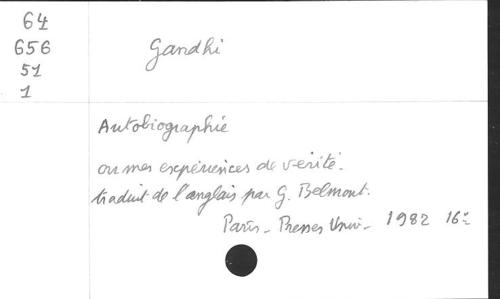 64
656
51
1
Gandhi
Autobiographie
ou mes expériences de vérité.
traduit de l'anglais par G. Belmont.
Paris - Presses Univ - 1982 16°